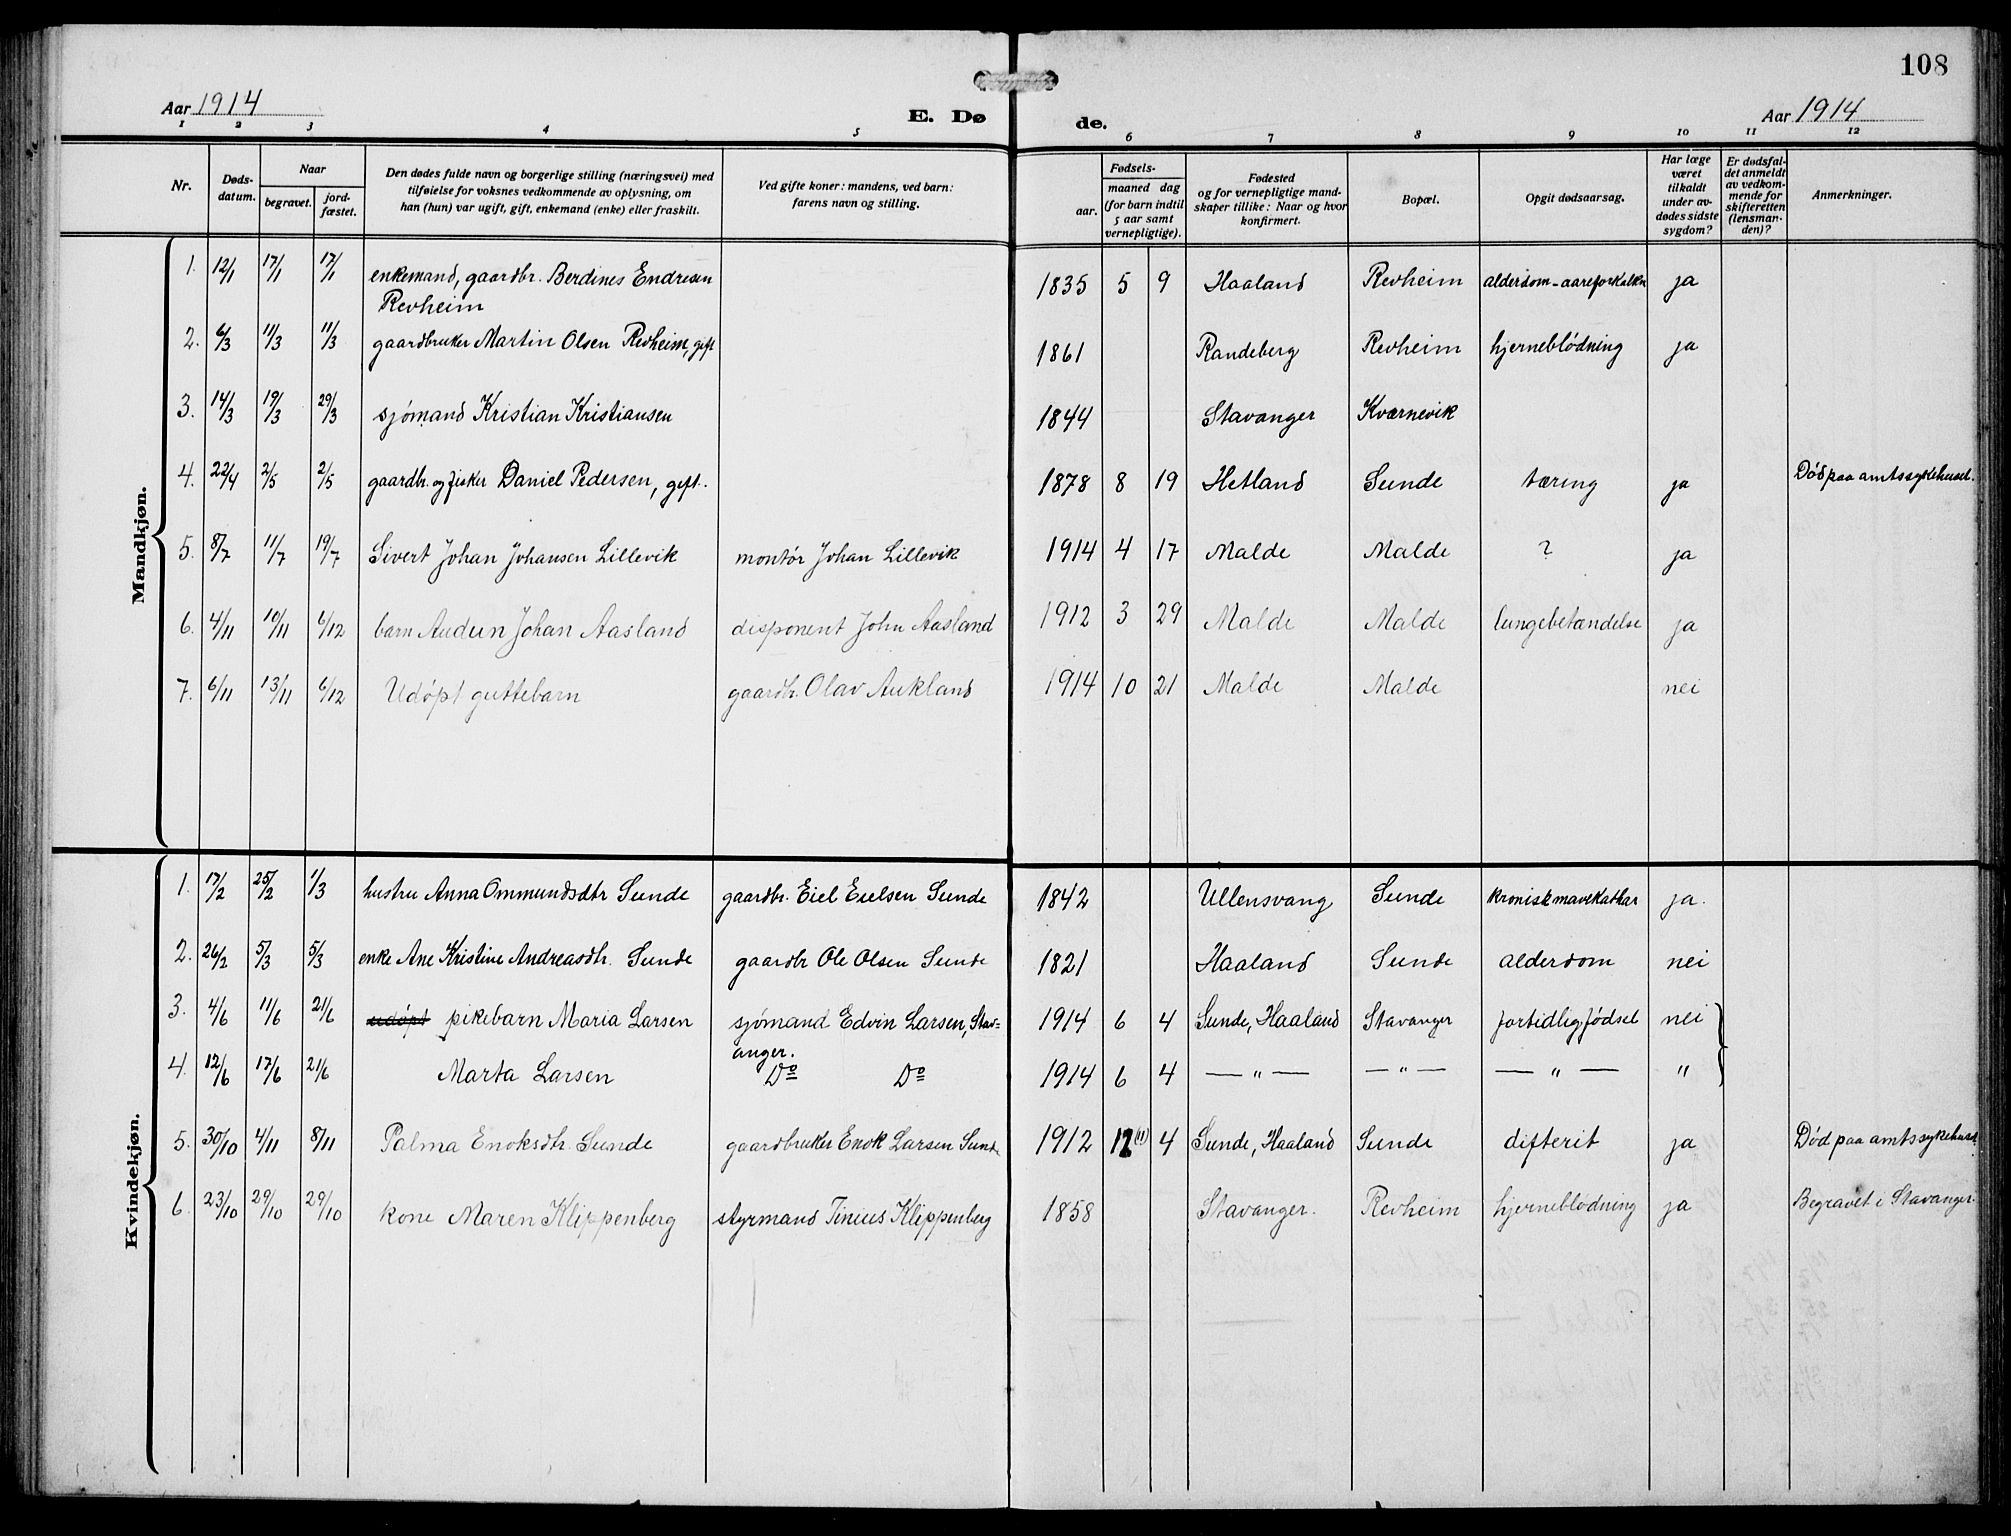 108
Aar 1914
E. Dø de.
Aar 1914
1 2 3 4 5 6 7 8 9 10 11 12
Nr.
Døds-
datum.
Naar
begravet.
jord-
fæstet.
Den dødes fulde navn og borgerlige stilling (næringsvei) med
tilføielse for voksnes vedkommende av oplysning, om
han (hun) var ugift, gift, enkemand (enke) eller fraskilt.
Ved gifte koner: mandens, ved barn:
farens navn og stilling.
Fødsels-
aar.
maaned dag
(for barn indtil
5 aar samt
vernepligtige).
Fødested
og for vernepligtige mand-
skaper tillike: Naar og hvor
konfirmert.
Bopæl.
Opgit dødsaarsag.
Har læge
været
tilkaldt
under av-
dødes sidste
sygdom?
Er dødsfal-
det anmeldt
av vedkom-
mende for
skifteretten
(lensman-
den)?
Anmerkninger.
Mandkjøn.
1. 12/1 17/1 17/1 enkemand, gaardbr. Berdines Endresen 1835 5 9 Haaland Revheim alderdom-aareforkalkn ja
Revheim
2. 6/3 11/3 11/3 gaardbruker Martin Olsen Revheim, gift 1861 Randeberg Revheim hjerneblödning ja
3. 14/3 19/3 29/3 sjómand Kristian Kristiansen 1844 Stavanger Kværnevik
4. 22/4 2/5 2/5 gaardbr. og fisker Daniel Pedersen, gift. 1878 8 19 Hetland Sunde tæring ja Död paa amtssykehuset.
5. 8/7 11/7 19/7 Sivert Johan Johansen Lillevik montór Johan Lillevik 1914 4 17 Malde Malde ? ja
6. 4/11 10/11 6/12 barn Audun Johan Aasland disponent John Aasland 1912 3 29 Malde Malde lungebetændelse ja
7. 6/11 13/11 6/12 Udópt guttebarn gaardbr. Olav Aukland 1914 10 21 Malde Malde nei
Kvindekjøn.
1. 17/2 25/2 1/3 hustru Anna Ommundsdtr Sunde gaardbr. Eiel Eielsen Sunde 1842 Ullensvang Sunde kronisk mavekathar ja.
2. 26/2 5/3 5/3 enke Ane Kristine Andreasdtr. Sunde gaardbr Ole Olsen Sunde 1821 Haaland Sunde alderdom nei
3. 4/6 11/6 21/6 udópt pikebarn Maria Larsen sjómand Edvin Larsen, Stav= 1914 6 4 Sunde, Haaland Stavanger fortidlig fódsel nei
anger.
4. 12/6 17/6 21/6 Marta Larsen Do Do 1914 6 4 — " — — " — — " — "
5. 30/10 4/11 8/11 Palma Enoksdtr. Sunde gaardbruker Enok Larsen Sunde 1912 12 (11) 4 Sunde, Haaland Sunde difterit ja Död paa amtssykehuset
6. 23/10 29/10 29/10 kone Maren Klippenberg styrmand Tinius Klippenberg 1858 Stavanger. Revheim hjerneblodning ja Begravet i Stavanger.